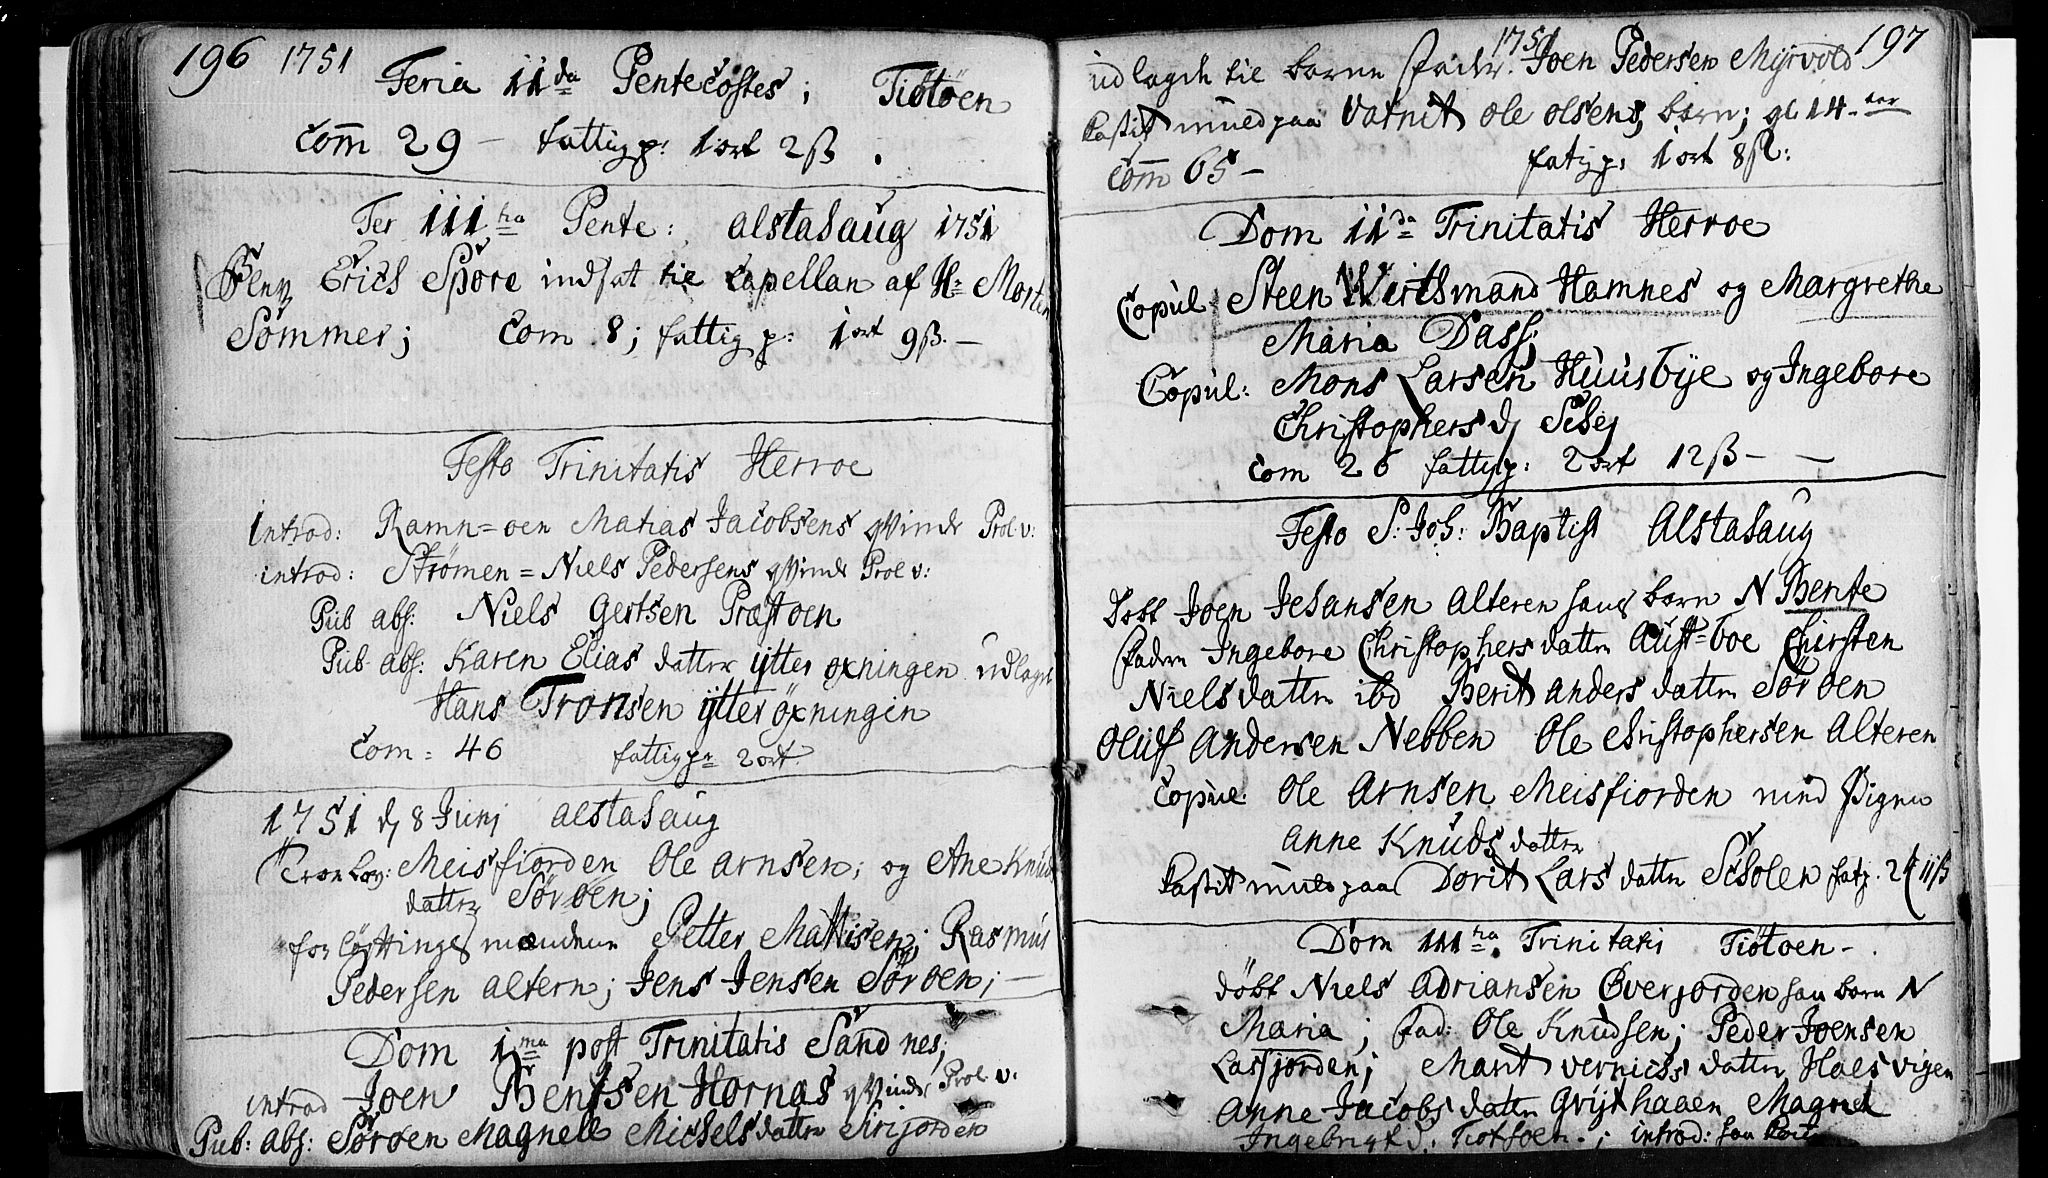 196 1751
Feria 11da Pentecostes; Tiøtöen
Com 29 – fattig p: 1 ort 2 ß.
Fer 111tia Pente: alstahaug 1751
Erich Spore indsat til Capellan af Hr Morten
Sommer; Com 8; fattig p: 1 ort 9 ß. –
Festo Trinitatis Herroe
Introd: Ramn=oen Matias Jacobsens qvinde Prol. v:
introd: Strømen = Niels Pedersens qvinde Prol v:
Pub abs: Niels Gertsen Præstoen
Pub abs: Karen Elias datter ytter øxningen udlagt
Hans Tronsen ytter øxningen
Com = 46 fattig p: 2 ort
1751 d 8 Junj alstahaug
Trolov: Meisfiorden Ole arnsen; og Ane Knuds
datter Sørøen;
forløftings mændene Petter Mattisen; Rasmus
Pedersen altern; Jens Jensen Sørøen; –
Dom 1ma post Trinitatis Sandnes;
introd Joen Bentsen Hornæs qvinde Prol. v:
Pub: abs: Sørøen Magnell Michels datter
1751 197
udlagde til barne fader. Joen Pedersen Myrvold
Castit muld paa vatnit Ole Olsens barn; gl 14
Com 65 – fatig p: 1 ort 8 ß:
Dom 11da Trinitatis Herroe
Copul Steen Wirthmand Hamnes og Margrethe
Maria Dass;
Copul: Mons Larsen Huusbye og Ingebore
Christophers d Sebej
Com 26 fattig p: 2 ort 12 ß –
Festo S: Joh: Baptist Alstahaug
Døbt Joen Johansen Alteren hans barn N Bente
faderne Ingebore Christophers datter Aust=boe Chirsten
Niels datter ibd Berit anders datter Sørøen
Oluf Andersen Nebben Ole Christophersen Alteren
Copul: Ole Arnsen Meisfiorden med Pigen
Anne Knuds datter
Castit muld paa Dorit Lars datter fat p. 2 11 ß
Dom 111tia Trinitati Tiøtoen –
døbt Niels Adriansen Øverjorden han barn N
Maria; fad: Ole Knudsen; Peder Joensen
; Marit datter
Anne Jacobs datter Magnel
Ingebrigt d. Tiøtoen.; introd: han